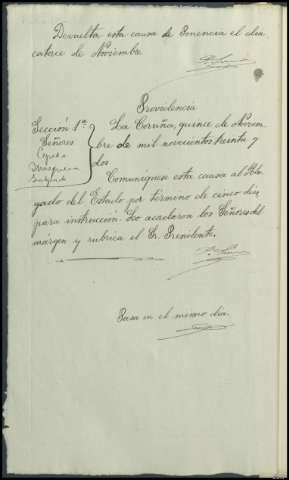 Devuelta esta causa de Ponencia el dia
catorce de Noviembre
Providencia
Sección 1ª
Señores
La Coruña, quince de Noviem
bre de mil novecientos treinta y
dos
Comuníquese esta causa al Abo
gado del Estado por término de cinco dias
para instrucción. Lo acordaron los Señores del
márgen y rubrica el Sr. Presidente.
Pasa en el mismo dia.